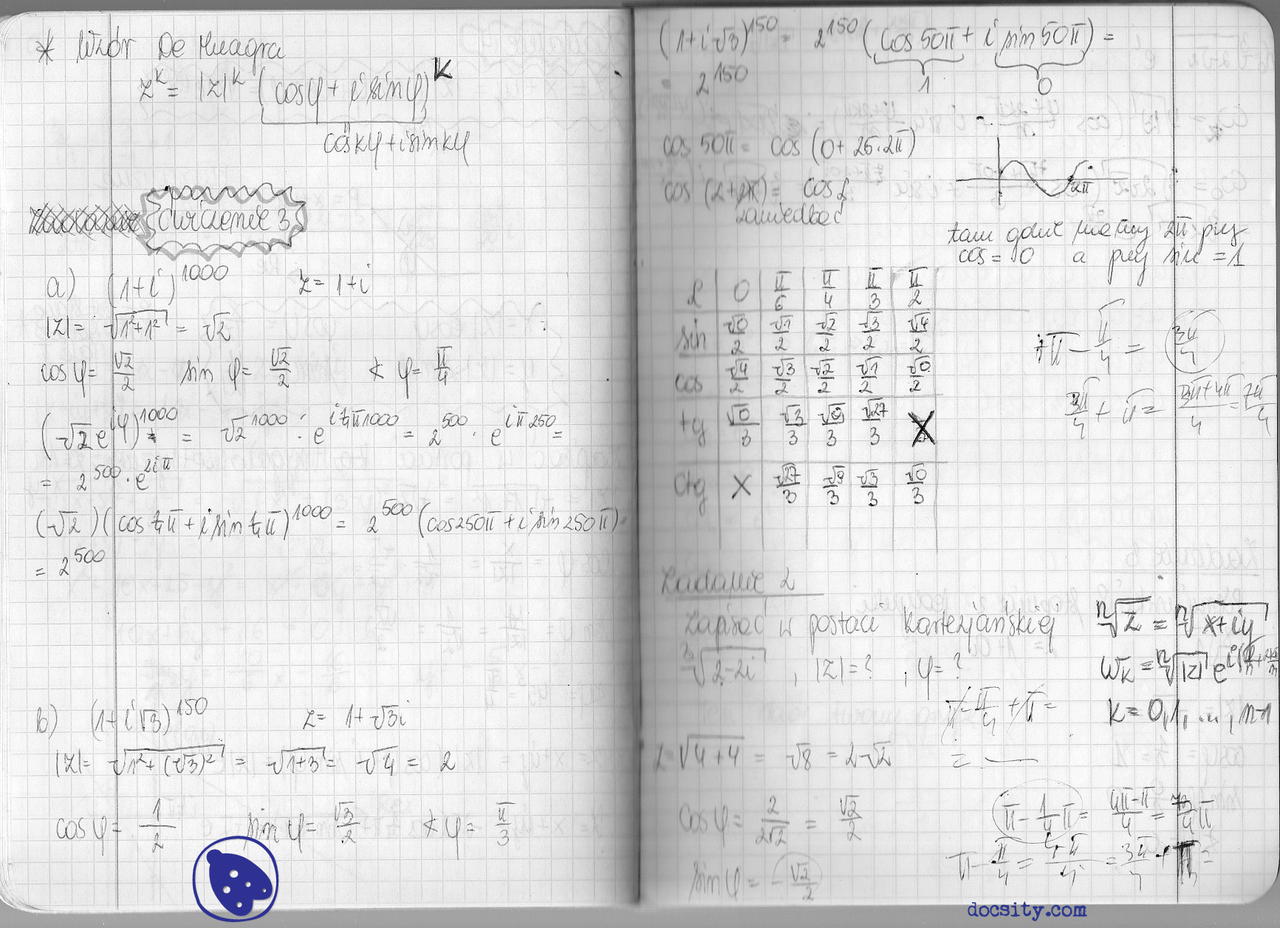 * Wzór De Muagra
z^k = |z|^k (cosφ + i sinφ)^k
cos kφ + i sin kφ
Ćwiczenie 3
a) (1+i)^1000 z = 1+i
|z| = √(1²+1²) = √2
cos φ = √2/2 sin φ = √2/2 ∢ φ = π/4
(√2 e^iφ)^1000 = √2^1000 · e^(i ¼π 1000) = 2^500 · e^(iπ 250) =
= 2^500 · e^(2iπ)
(√2)(cos ¼π + i sin ¼π)^1000 = 2^500 (cos 250π + i sin 250π)
= 2^500
b) (1+i√3)^150 z = 1+√3i
|z| = √(1²+(√3)²) = √(1+3) = √4 = 2
cos φ = 1/2 sin φ = √3/2 ∢ φ = π/3
(1+i√3)^150 = 2^150 (cos 50π + i sin 50π) =
1 0
= 2^150
cos 50π = cos (0 + 25·2π)
cos (2+2π) = cos 2
zaniedbać
2π
tam gdzie mierzy 2π przy
cos = 0 a przy sin = 1
α 0 π/6 π/4 π/3 π/2
sin √0/2 √1/2 √2/2 √3/2 √4/2
cos √4/2 √3/2 √2/2 √1/2 √0/2
tg √0/3 √3/3 √9/3 √27/3 X
ctg X √27/3 √9/3 √3/3 √0/3
π - π/4 = 3π/4
3π/4 + π = (3π+4π)/4 = 7π/4
Zadanie 2
Zapisać w postaci kartezjańskiej
³√(2-2i) , |z| = ? , φ = ?
ⁿ√z = ⁿ√(x+iy)
k = 0,1, ..., n-1
z = √(4+4) = √8 = 2√2
cos φ = 2/(2√2) = √2/2
sin φ = - √2/2
-π/4 + π =
π - ¼π = (4π-π)/4
docsity.com